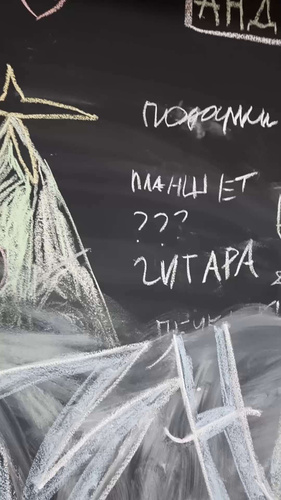 АНД
подарки
ПЛАНШЕТ
???
ГИТАРА